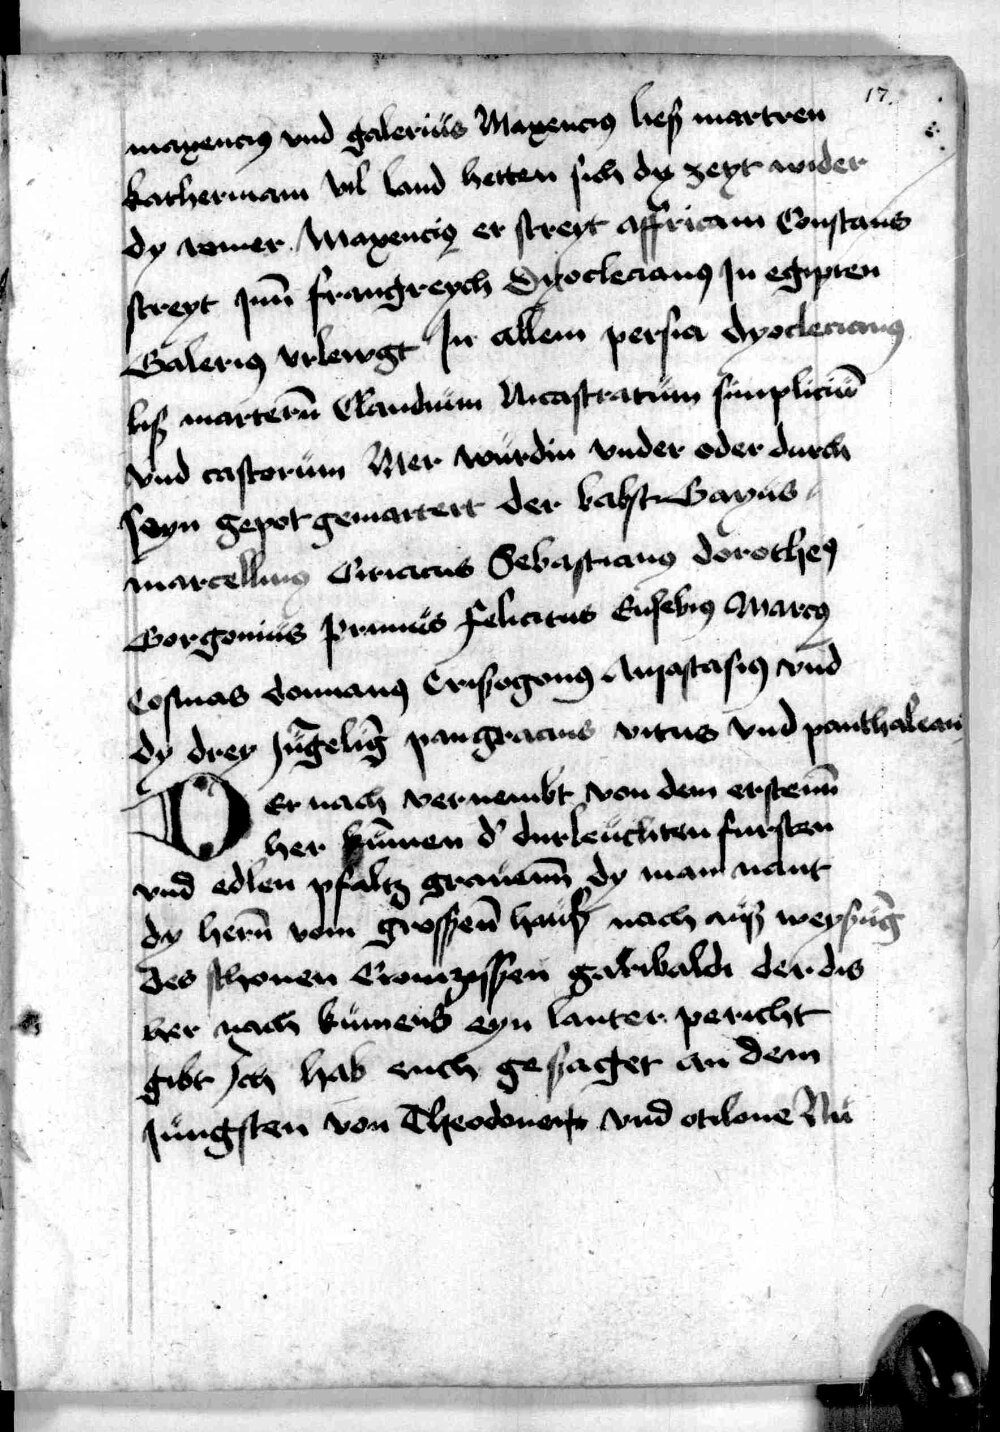 17.
maxencius vnd galeriüs Maxencius ließ martren
katherinam Vil land hetten sich dy zeyt wider
dy romer Maxencius er streyt affricam Constans
streyt Jnn̄ frangreych Dyoclecianus Jn egipten
Galerius vrlewgt Jn allem persia dyoclecianus
liß marterñ Claudiüm Nicastratüm simpliciū
vnd castorüm Mer würdin vnder oder durch
seyn gepot gemartert der babst Gayüs
marcellinus Ciriacus Sebastianus dorotheus
Gorgoniüs Primüs felicitus Eusebius Marcus
Cosmas domianus Crisogonus Anastasius vnd
dy drey Jügelīg pangracius vitus vnd panthalean
Der nach vernembt von dem erstenn̄
her kümen d' durleüchten fursten
vnd edlen pfaltz grauenn̄ dy man nant
dy herñ vom grossen̄ hauß nach auß weysūg
des schonen Croniczissen garibaldi der dis
her nach kümens eyn lauter pericht
gibt Jch hab euch gesaget an dem
Jüngsten von Theodone vnd otilone Nü